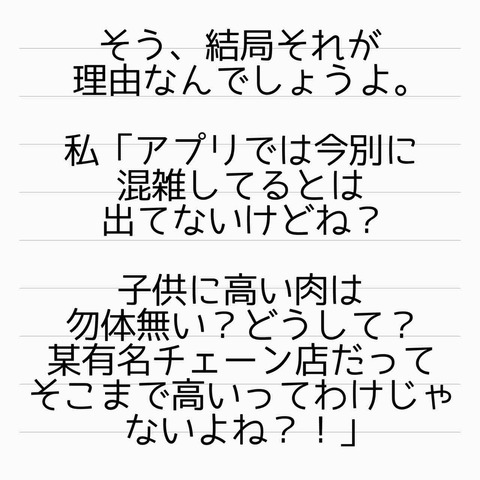 そう、結局それが
理由なんでしょうよ。
私「アプリでは今別に
混雑してるとは
出てないけどね？
子供に高い肉は
勿体無い？どうして？
某有名チェーン店だって
そこまで高いってわけじゃ
ないよね？！」